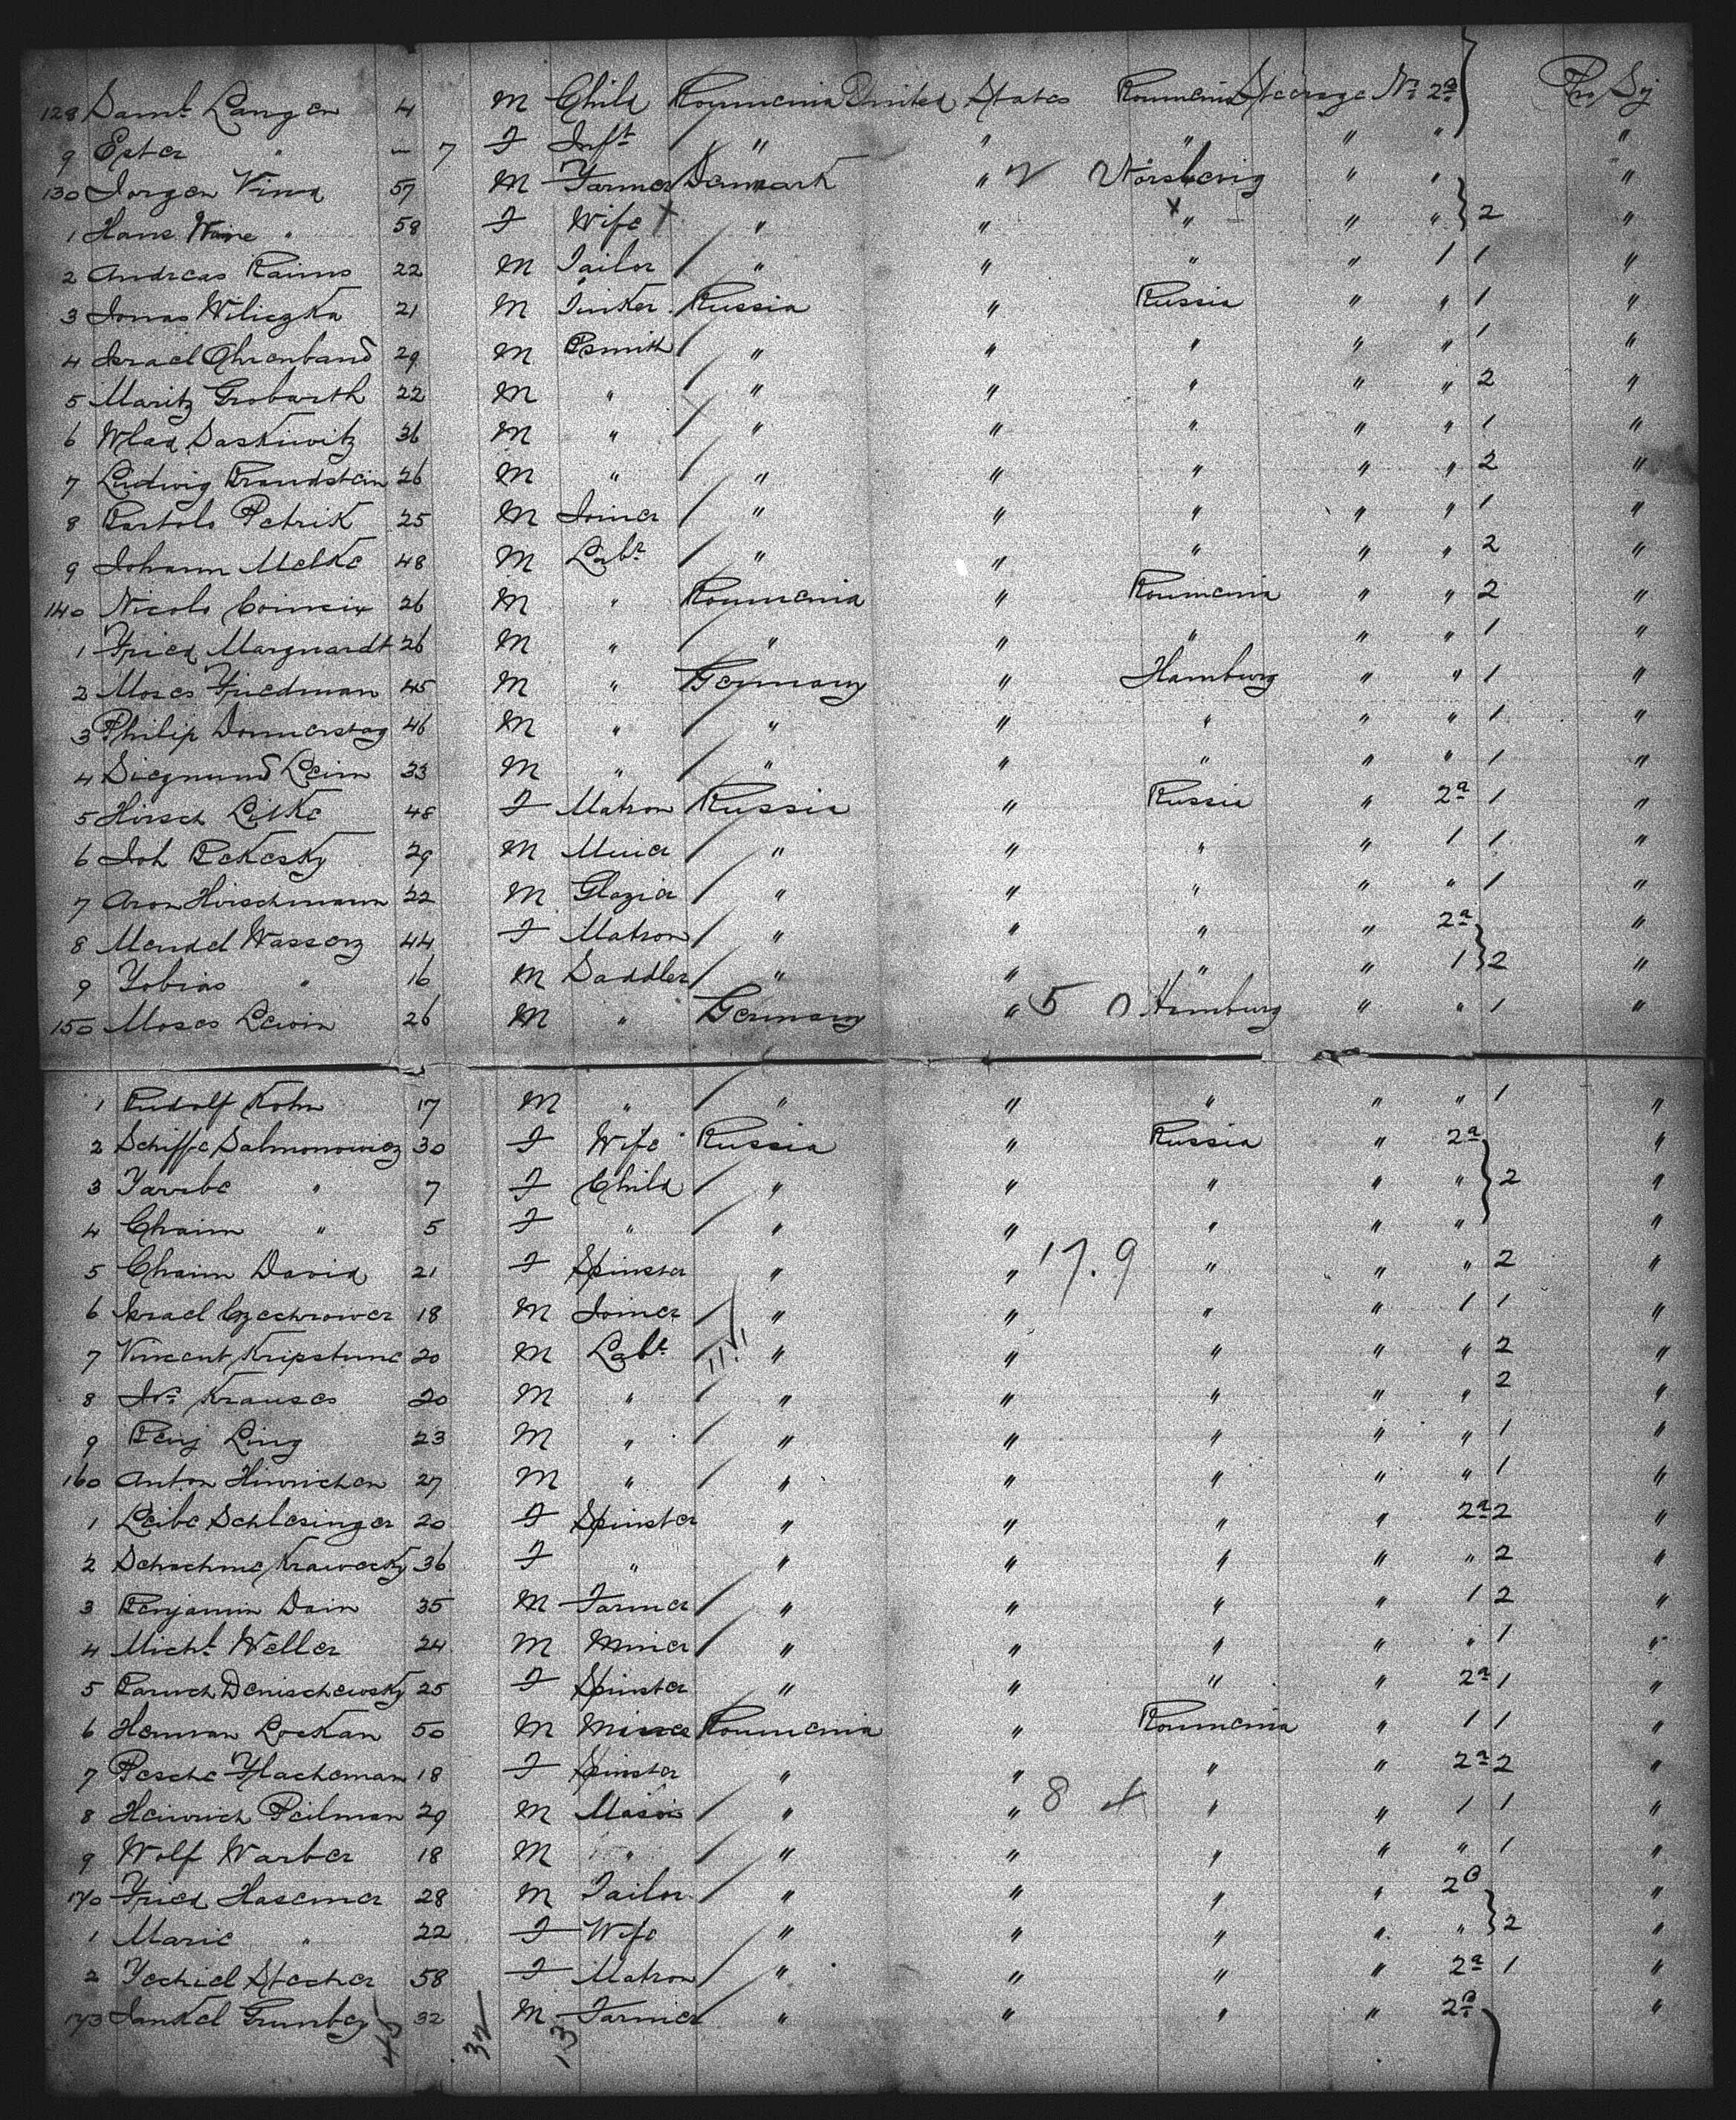 128 Saml Langer 4 M Child Roumenia United States Roumenia Steerage No 2a
9 Ester " – 7 F Inft " " " " " "
130 Jorgen Vind 57 M Farmer Denmark " " " "
1 Hans " 58 F Wife " " " " " 2 "
2 Andreas 22 M Tailor " " " " 1 1 "
3 Jonas Wiliczka 21 M Tinker Russia " Russia " " 1 "
4 Israel Ehrenband 29 M Bsmith " " " " " 1 "
5 Maritz Grobarth 22 M " " " " " " 2 "
6 Wlad Saskiwitz 36 M " " " " " " 1 "
7 Ludwig Brandstein 26 M " " " " " " 2 "
8 Bartolo Petrik 25 M Joiner " " " " " 1 "
9 Johann Melke 48 M Labr " " " " " 2 "
140 Nicolo 26 M " Roumenia " Roumenia " " 2 "
1 Fried Marguardt 26 M " " " " " " 1 "
2 Moses Friedman 45 M " Germany " Hamburg " " 1 "
3 Philip Donnerstag 46 M " " " " " " 1 "
4 Siegmund 33 M " " " " " " 1 "
5 Hirsch Litke 48 F Matron Russia " Russia " 2a 1 "
6 Joh Bekesky 29 M Miner " " " " 1 1 "
7 Aron Hirschmann 22 M Glazier " " " " " 1 "
8 Mendel 44 F Matron " " " " 2a "
9 Tobias " 16 M Saddler " " " " 1 2 "
150 Moses Lewin 26 M " Germany " 5 0 Hamburg " " 1 "
1 Rudolf Kohn 17 M " " " " " " 1 "
2 Schiffe Salmonowicz 30 F Wife Russia " Russia " 2a "
3 " 7 F Child " " " " " 2 "
4 Chaim " 5 F " " " " " " "
5 Chaim David 21 F Spinster " " 17.9 " " " 2 "
6 Israel Czechrower 18 M Joiner " " " " 1 1 "
7 Vincent Kripstune 20 M Labr " " " " " 2 "
8 Krauses 20 M " " " " " " 2 "
9 Benj Ling 23 M " " " " " " 1 "
160 Anton Hinrichen 27 M " " " " " " 1 "
1 Leibe Schlesinger 20 F Spinster " " " " 2a 2 "
2 Schochme Krawecky 36 F " " " " " " 2 "
3 Benjamin Dain 35 M Farmer " " " " 1 2 "
4 Michl Weller 24 M Miner " " " " " 1 "
5 Baruch Denischewsky 25 F Spinster " " " " 2a 1 "
6 Herman Lockan 50 M Roumenia " Roumenia " 1 1 "
7 Pesche 18 F Spinster " " " " 2a 2 "
8 Heinrich Peilman 29 M Mason " " 8 4 " " 1 1 "
9 Wolf Warber 18 M " " " " " " 1 "
170 Fried Hasemer 28 M Tailor " " " " "
1 Marie " 22 F Wife " " " " " 2 "
2 Jechiel Stecher 58 F Matron " " " " 2a 1 "
173 Jankel 32 M Farmer " " " " 2a "
45 32 13